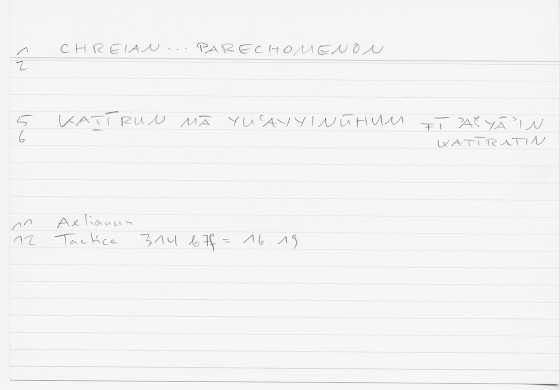 1 CHREIAN... PARECHOMENON
2
5 KAṮĪRUN MĀ YUʿAYYINŪHUM FĪ ʾAŠYĀʾIN
6 KAṮĪRATIN
11 Aelianus
12 Tactica 314 b 7f = 16.19